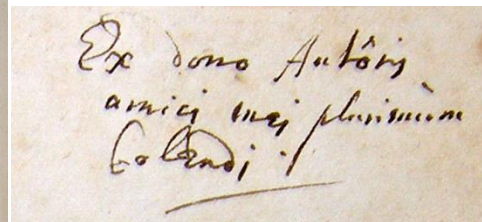 Ex dono Autôris
amici mei plurimùm
Colendi.